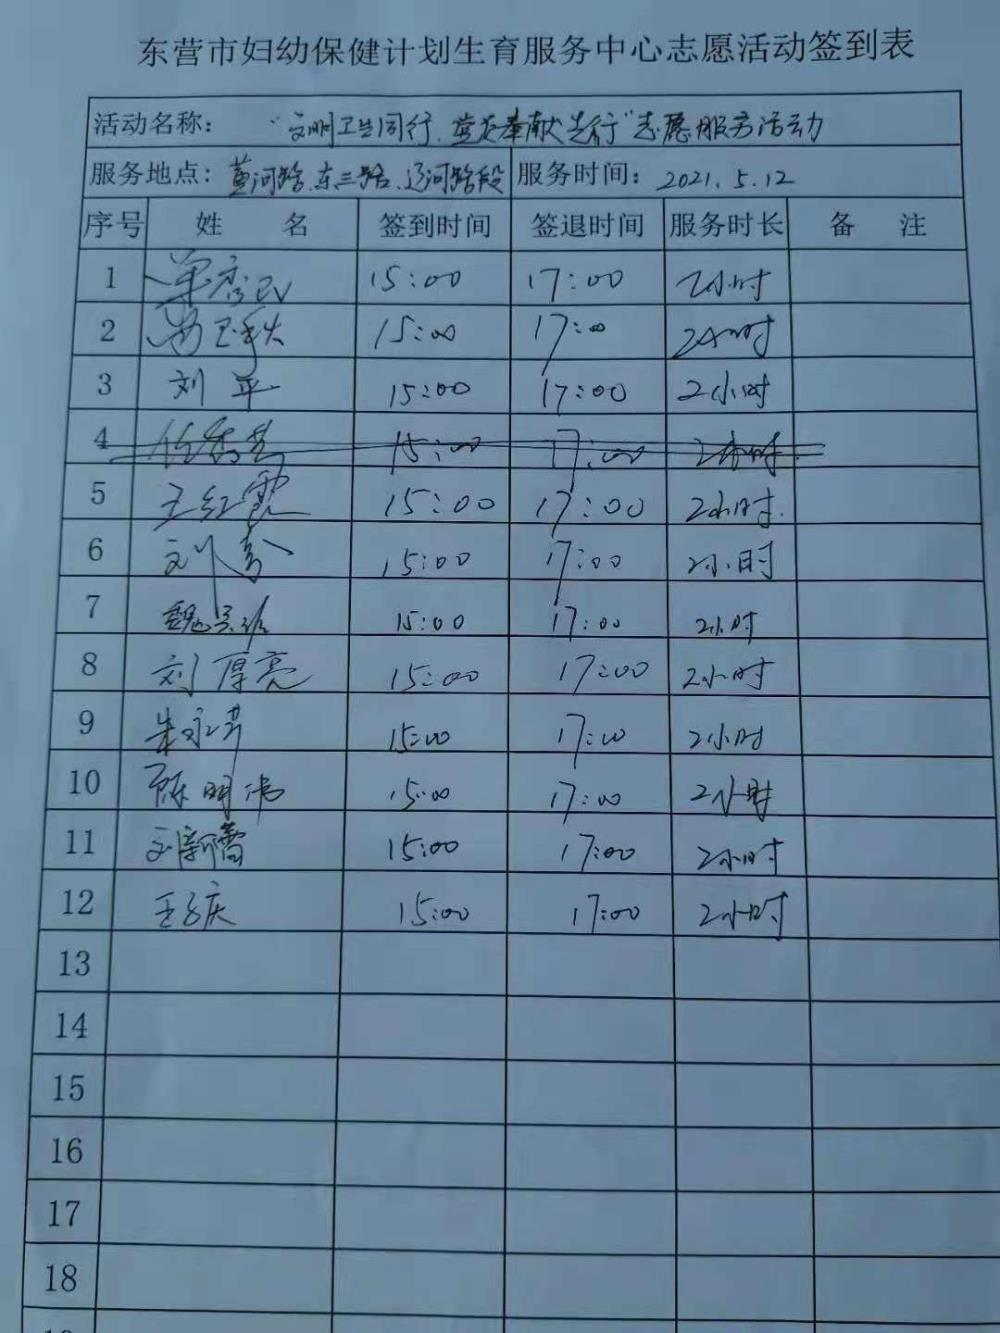 东营市妇幼保健计划生育服务中心志愿活动签到表
活动名称： “文明卫生同行、党建奉献先行”志愿服务活动
服务地点：黄河路、东三路、辽河路段 服务时间：2021.5.12
序号 姓 名 签到时间 签退时间 服务时长 备 注
1 15:00 17:00 2小时
2 15:00 17:00 2小时
3 刘平 15:00 17:00 2小时
4 15:00 17:00 2小时
5 王红霞 15:00 17:00 2小时.
6 刘 15:00 17:00 2小时
7 魏 15:00 17:00 2小时
8 刘厚亮 15:00 17:00 2小时
9 朱永 15:00 17:00 2小时
10 陈明伟 15:00 17:00 2小时
11 新蕾 15:00 17:00 2小时
12 王庆 15:00 17:00 2小时
13
14
15
16
17
18